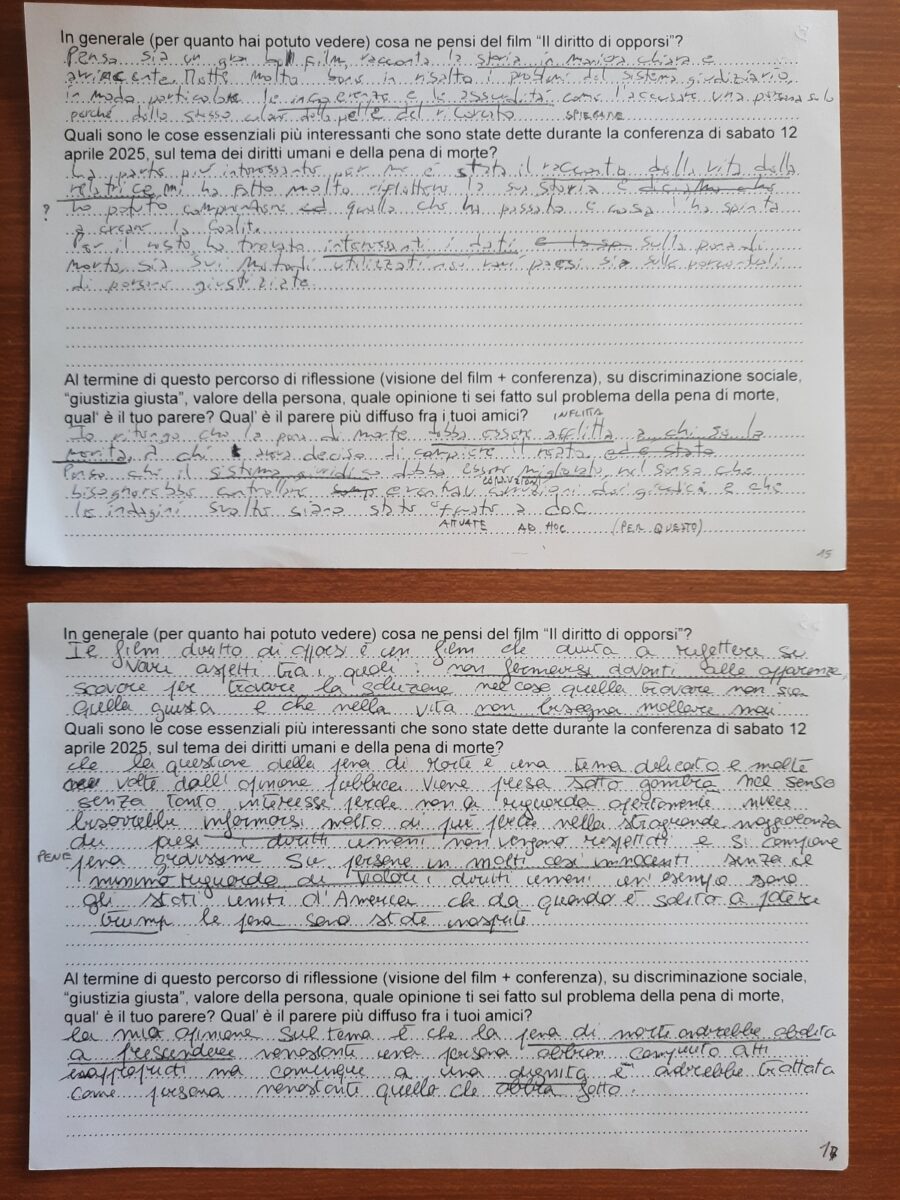 In generale (per quanto hai potuto vedere) cosa ne pensi del film “Il diritto di opporsi”?
Penso sia un gran bel film, racconta la storia in maniera chiara e
Mette molto bene in risalto i problemi del sistema giudiziario,
in modo particolare le incoerenze e le assurdità come l'accusare una persona solo
perché dello stesso color della pelle del ricercato
SPIEGARE
Quali sono le cose essenziali più interessanti che sono state dette durante la conferenza di sabato 12
aprile 2025, sul tema dei diritti umani e della pena di morte?
La parte più interessante per me è stata il racconto della vita della
relatrice mi ha fatto molto riflettere la sua storia e
? ho potuto comprendere quello che ha passato e cosa l'ha spinta
a creare la
Per il resto ho trovato interessanti i dati sulla pena di
morte, sia sui metodi utilizzati nei vari paesi sia sulle percentuali
di persone giustiziate.
Al termine di questo percorso di riflessione (visione del film + conferenza), su discriminazione sociale,
“giustizia giusta”, valore della persona, quale opinione ti sei fatto sul problema della pena di morte,
qual‘ è il tuo parere? Qual’ è il parere più diffuso fra i tuoi amici?
INFLITTA
Io ritengo che la pena di morte debba essere afflitta a chi se la
merita, a chi aveva deciso di compiere il reato,
Penso che il sistema debba esser migliorato nel senso che
CORRUZIONI
bisognerebbe controllare corruzioni dei giudici e che
le indagini svolte siano state a doc
ATTUATE AD HOC (PER QUESTO)
15
In generale (per quanto hai potuto vedere) cosa ne pensi del film “Il diritto di opporsi”?
Il film diritto di opporsi è un film che aiuta a riflettere su
vari aspetti tra i quali: non fermarsi davanti alle apparenze,
scavare per trovare la soluzione nel caso quella trovare non sia
quella giusta e che nella vita non bisogna mollare mai
Quali sono le cose essenziali più interessanti che sono state dette durante la conferenza di sabato 12
aprile 2025, sul tema dei diritti umani e della pena di morte?
che la questione della pena di morte è una tema delicato e molte
volte dall'opinione pubblica viene presa sotto gamba nel senso
senza tanto interesse perche non la riguarda apertamente invece
bisogrebbe informarsi molto di più perche nella stragrande maggioranza
dei paesi i diritti umani non vengono rispettati e si compiono
PENE
pena gravissime su persone in molti casi innocenti senza il
minimo riguardo di valori, diritti umani un'esempio sono
gli stati uniti d'America che da quando è salito a potere
trump le pena sono state inasprite
Al termine di questo percorso di riflessione (visione del film + conferenza), su discriminazione sociale,
“giustizia giusta”, valore della persona, quale opinione ti sei fatto sul problema della pena di morte,
qual‘ è il tuo parere? Qual’ è il parere più diffuso fra i tuoi amici?
La mia opinione sul tema è che la pena di morte andrebbe abolita
a prescindere nonostante una persona abbia compiuto atti
ma comunque a una dignità e andrebbe trattata
come persona nonostante quello che abbia fatto.